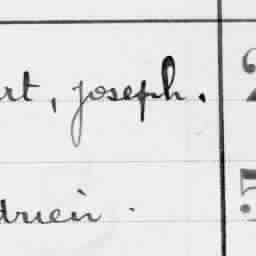 rt, Joseph. 2
drien. 5